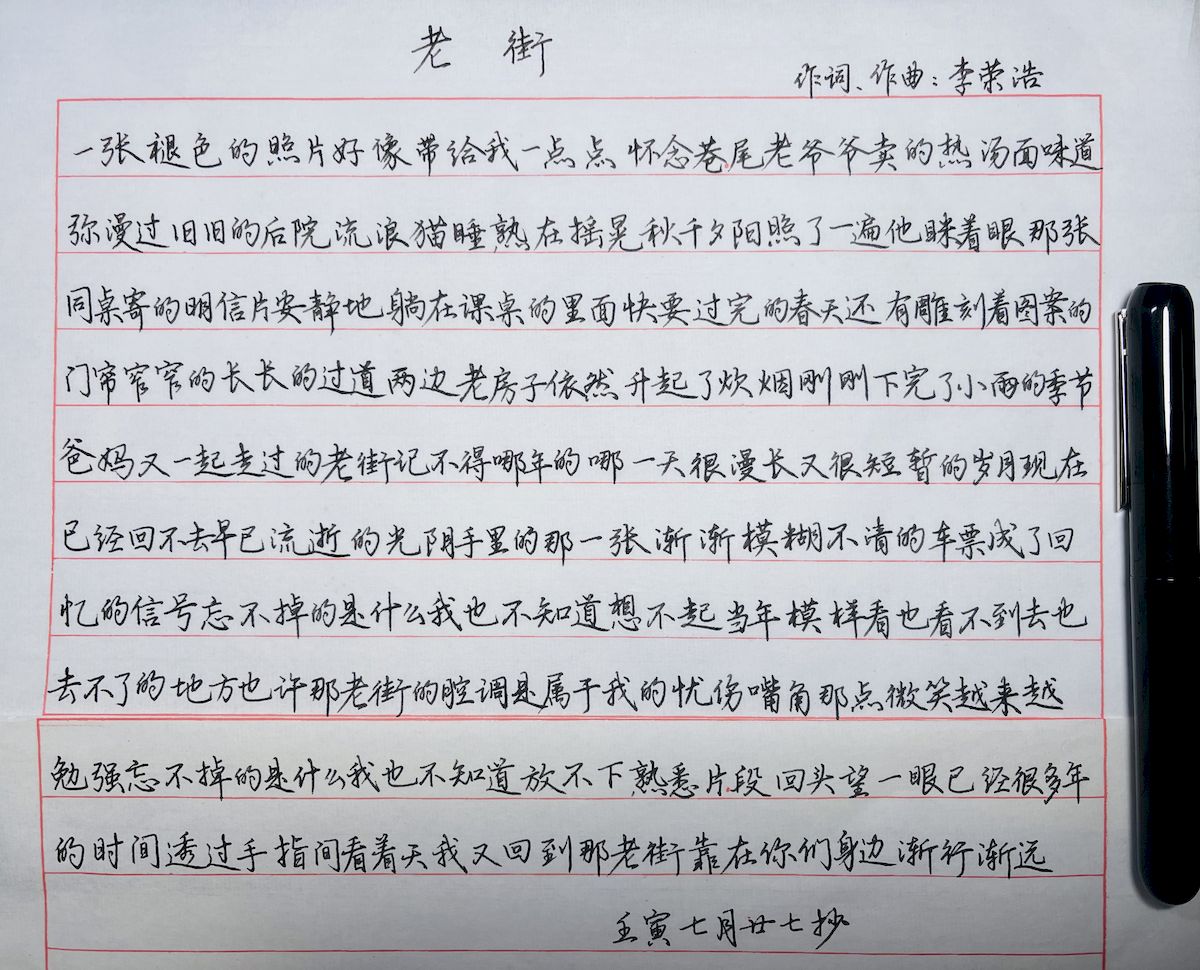 老街
作词、作曲：李荣浩
一张褪色的照片好像带给我一点点怀念巷尾老爷爷卖的热汤面味道
弥漫过旧旧的后院流浪猫睡熟在摇晃秋千夕阳照了一遍他眯着眼那张
同桌寄的明信片安静地躺在课桌的里面快要过完的春天还有雕刻着图案的
门帘窄窄的长长的过道两边老房子依然升起了炊烟刚刚下完了小雨的季节
爸妈又一起走过的老街记不得哪年的哪一天很漫长又很短暂的岁月现在
已经回不去早已流逝的光阴手里的那一张渐渐模糊不清的车票成了回
忆的信号忘不掉的是什么我也不知道想不起当年模样看也看不到去也
去不了的地方也许那老街的腔调是属于我的忧伤嘴角那点微笑越来越
勉强忘不掉的是什么我也不知道放不下熟悉片段回头望一眼已经很多年
的时间透过手指间看着天我又回到那老街靠在你们身边渐行渐远
壬寅七月廿七抄